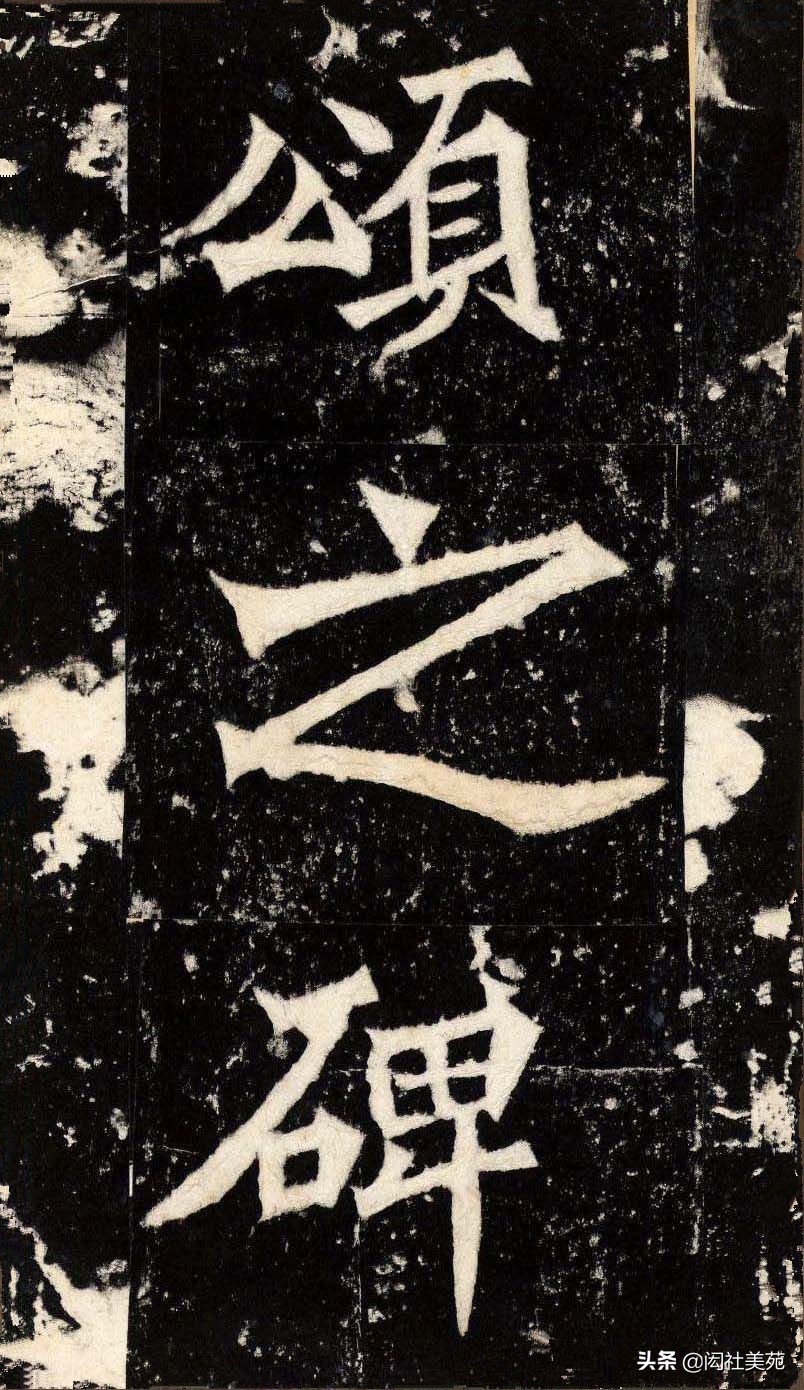 頌
之
碑
头条 @闳社美苑